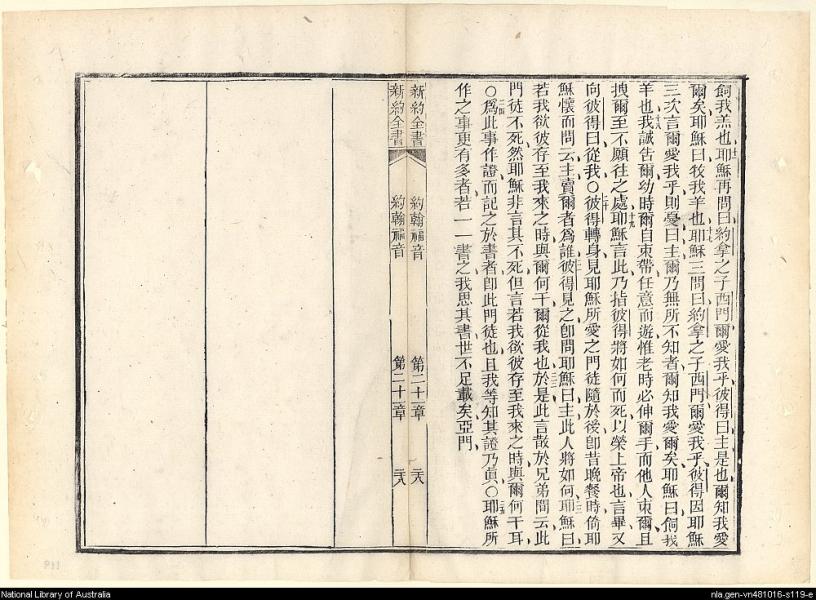 飼我羔也耶穌再問曰約拿之子西門爾愛我乎彼得曰主是也爾知我愛
爾矣耶穌曰牧我羊也耶穌三問曰約拿之子西門爾愛我乎彼得因耶穌
三次言爾愛我乎則憂曰主爾乃無所不知者爾知我愛爾矣耶穌曰飼我
羊也我誠告爾幼時爾自束帶任意而遊惟老時必伸爾手而他人束爾且
拽爾至不願往之處耶穌言此乃指彼得將如何而死以榮上帝也言畢又
向彼得曰從我○彼得轉身見耶穌所愛之門徒隨於後卽昔晚餐時倚耶
穌懷而問云主賣爾者爲誰彼得見之卽問耶穌曰主此人將如何耶穌曰
若我欲彼存至我來之時與爾何干爾從我也於是此言散於兄弟間云此
門徒不死然耶穌非言其不死但言若我欲彼存至我來之時與爾何干耳
○爲此事作證而記之於書者卽此門徒也且我等知其證乃眞○耶穌所
作之事更有多者若一一書之我思其書世不足載矣亞門
新約全書 約翰福音 第二十一章 二八
新約全書 約翰福音 第二十一章 二八
National Library of Australia
nla.gen-vn481016-s119-e